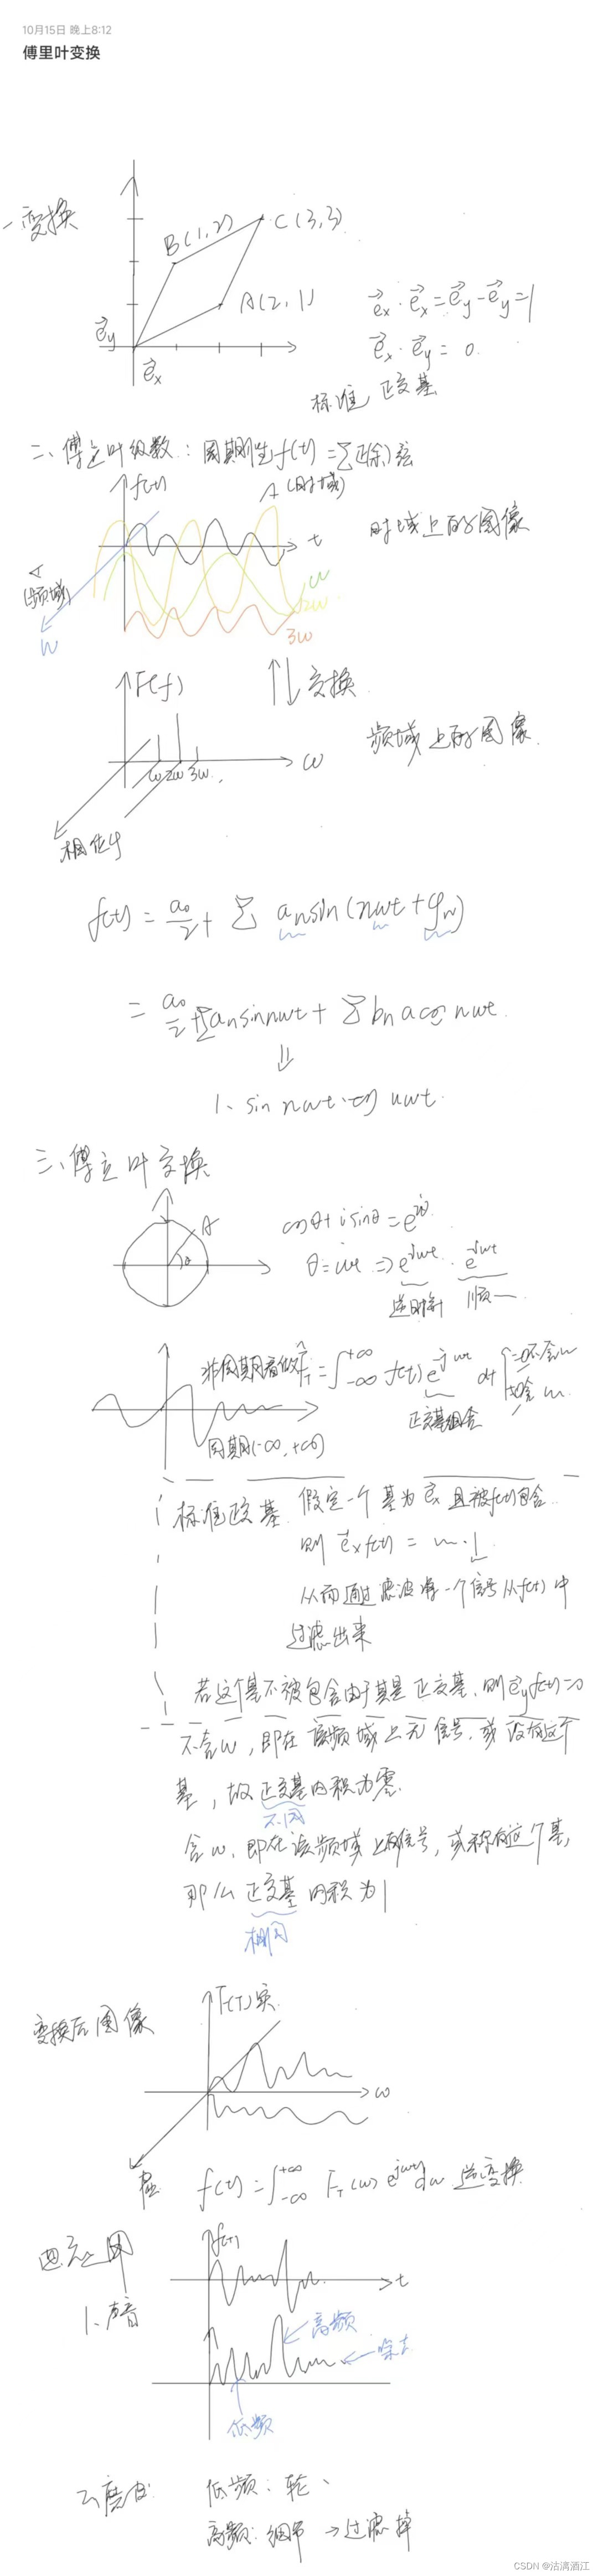 10月15日 晚上8:12
傅里叶变换
一变换
B(1,2)
C(3,3)
A(2,1)
e⃗y
e⃗x
e⃗x·e⃗x=e⃗y-e⃗y=1
e⃗x·e⃗y=0.
标准 正交基
二、傅立叶级数:周期性f(t)=∑正(余)弦
f(t)
(时域)
t
时域上的图像
(频域)
W
w
2w
3w
F(f)
变换
频域上的图像
w 2w 3w
ω
相位φ
f(t)=a₀/2+∑ aₙsin(nωt+φₙ)
=a₀/2+∑aₙsinnωt+∑bₙacos nωt.
⇓
1、sin nωt、cos nωt.
三、傅立叶变换
A
θ
cosθ+isinθ=e^iθ
θ=ωt ⇒e^jωt · e^-jωt
逆时针 顺一
非周期看做
F_T=∫₋∞^+∞ f(t)e^-jωt dt
=0不含w
≠0含w
正交基组合
周期(-∞,+∞)
标准正交基 假定一个基为e⃗x且被f(t)包含
则 e⃗x f(t) = m·1
从而通过滤波将一个信号从f(t)中
过滤出来
若这个基不被包含由于其是正交基,则e⃗yf(t)=0
不含w,即在该频域上无信号,或没有这个
基,故正交基内积为零.
不同
含w,即在该频域上有信号,或称有这个基,
那么正交基内积为1
相同
变换后图像
F(T)实
ω
虚
f(t)=∫₋∞^+∞ F_T(w)e^jωt dw 逆变换
四、应用
1、声音
f(t)
t
高频
除去
低频
2、磨皮: 低频:轮、
高频:细节→过滤掉
CSDN @沽漓酒江